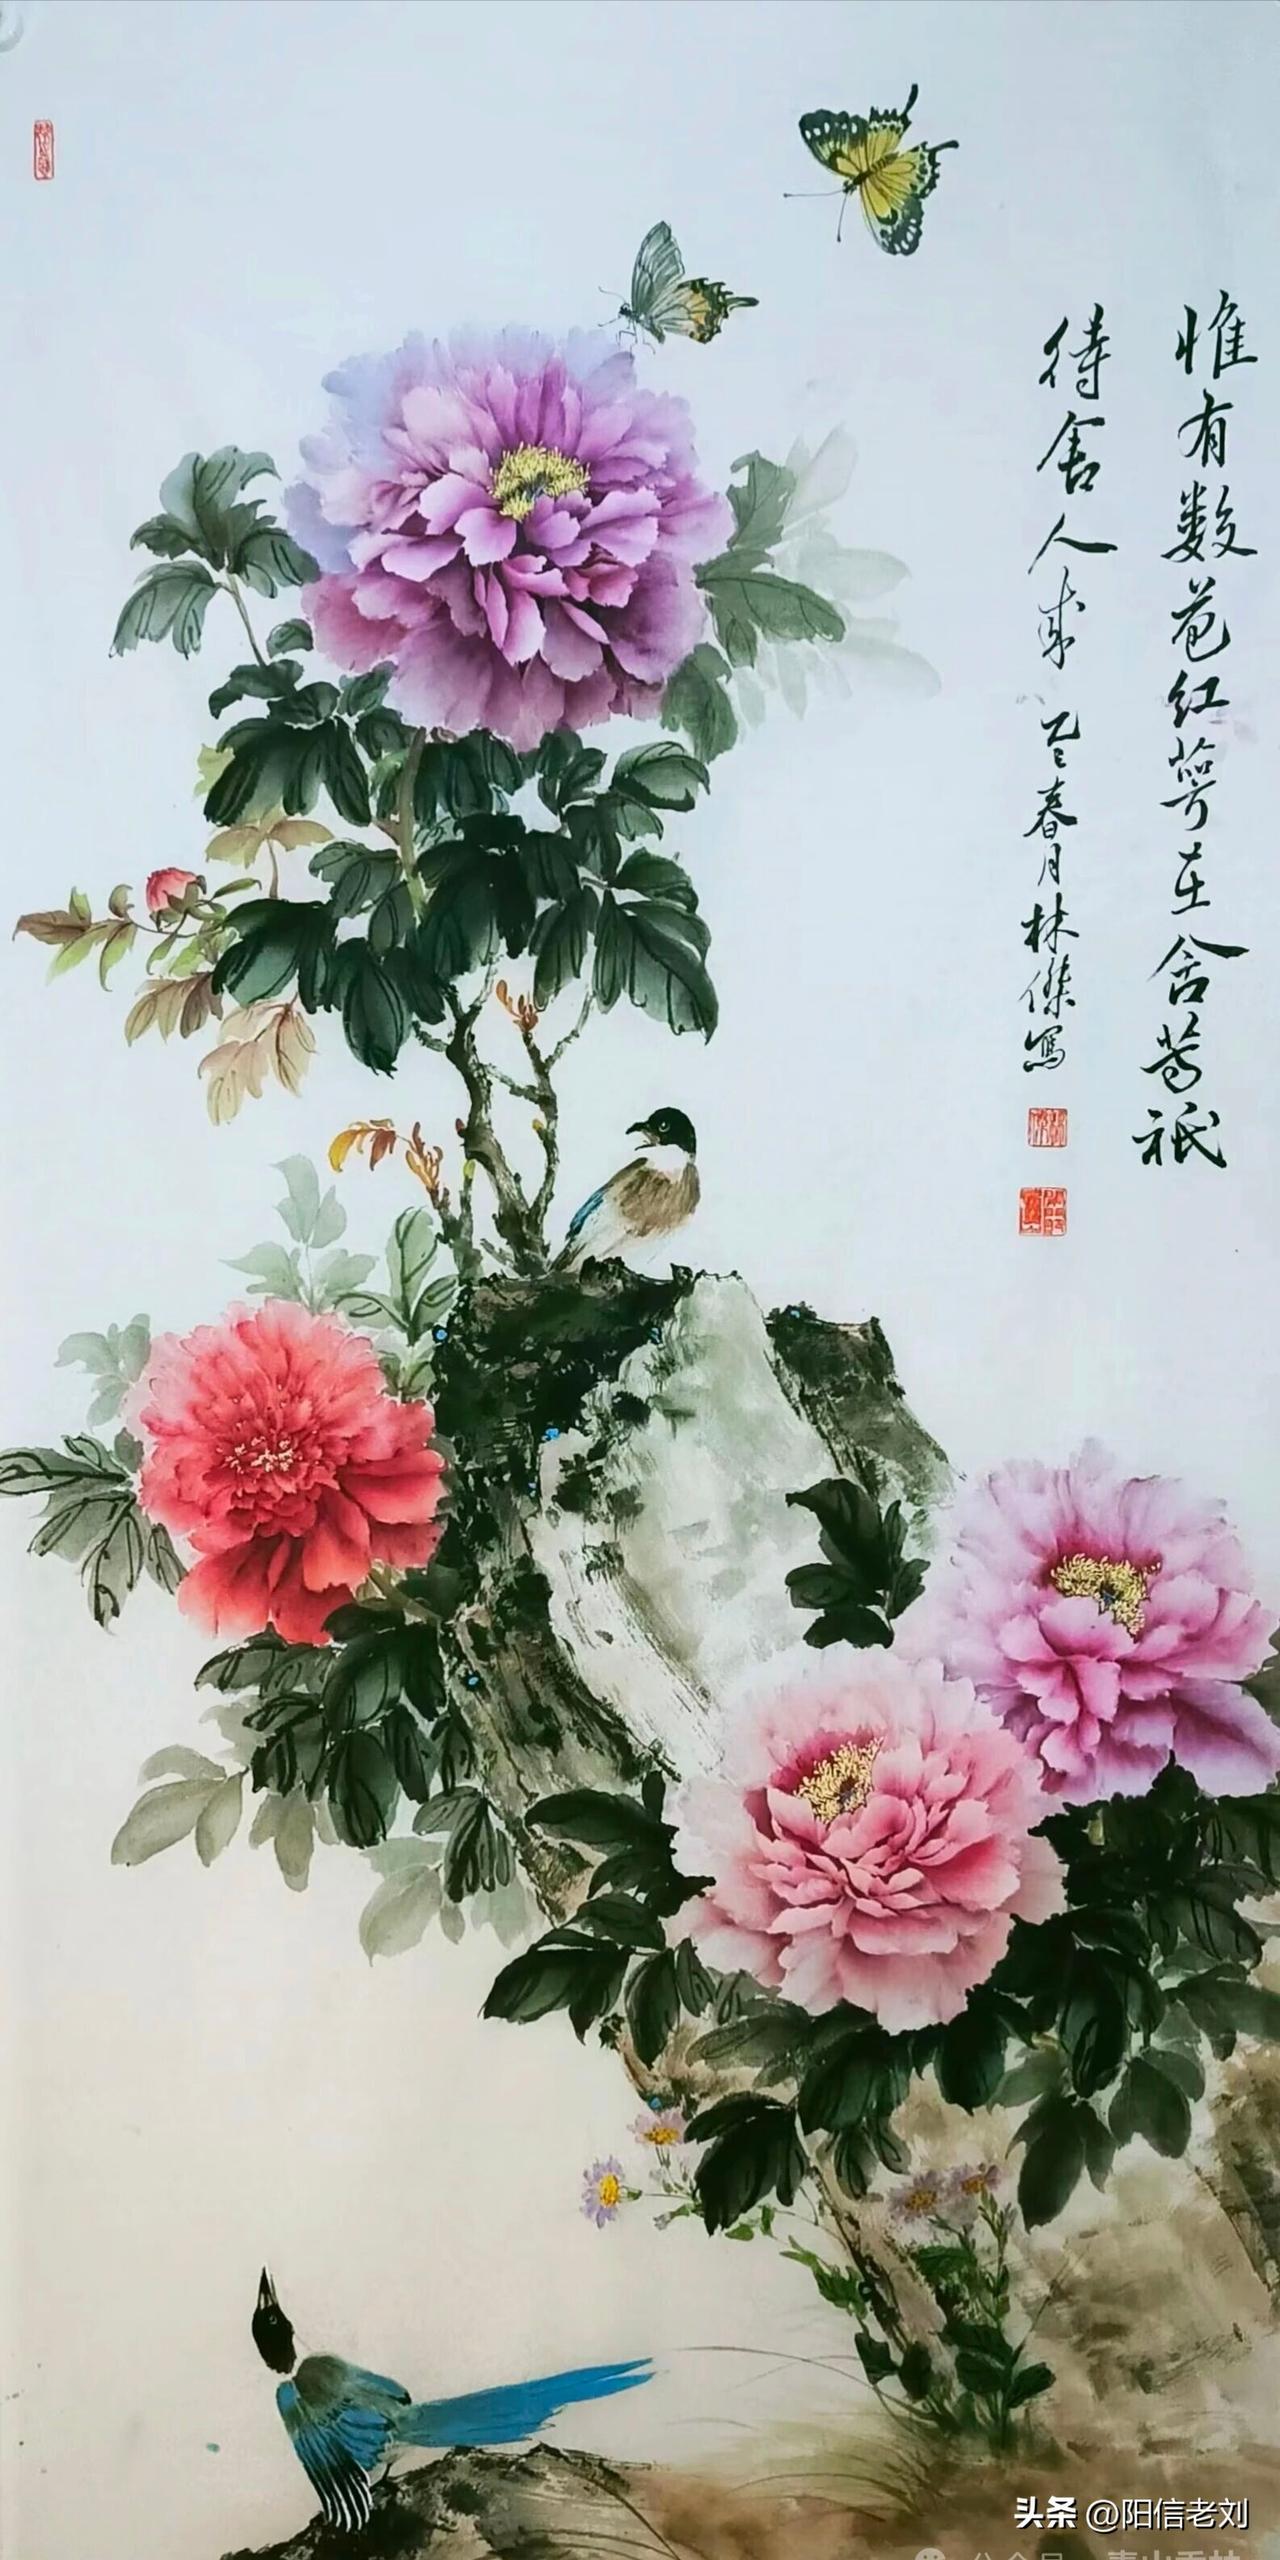 惟有数苞红萼在含芳祇
待舍人来 乙巳春月林傑寫
头条 @阳信老刘